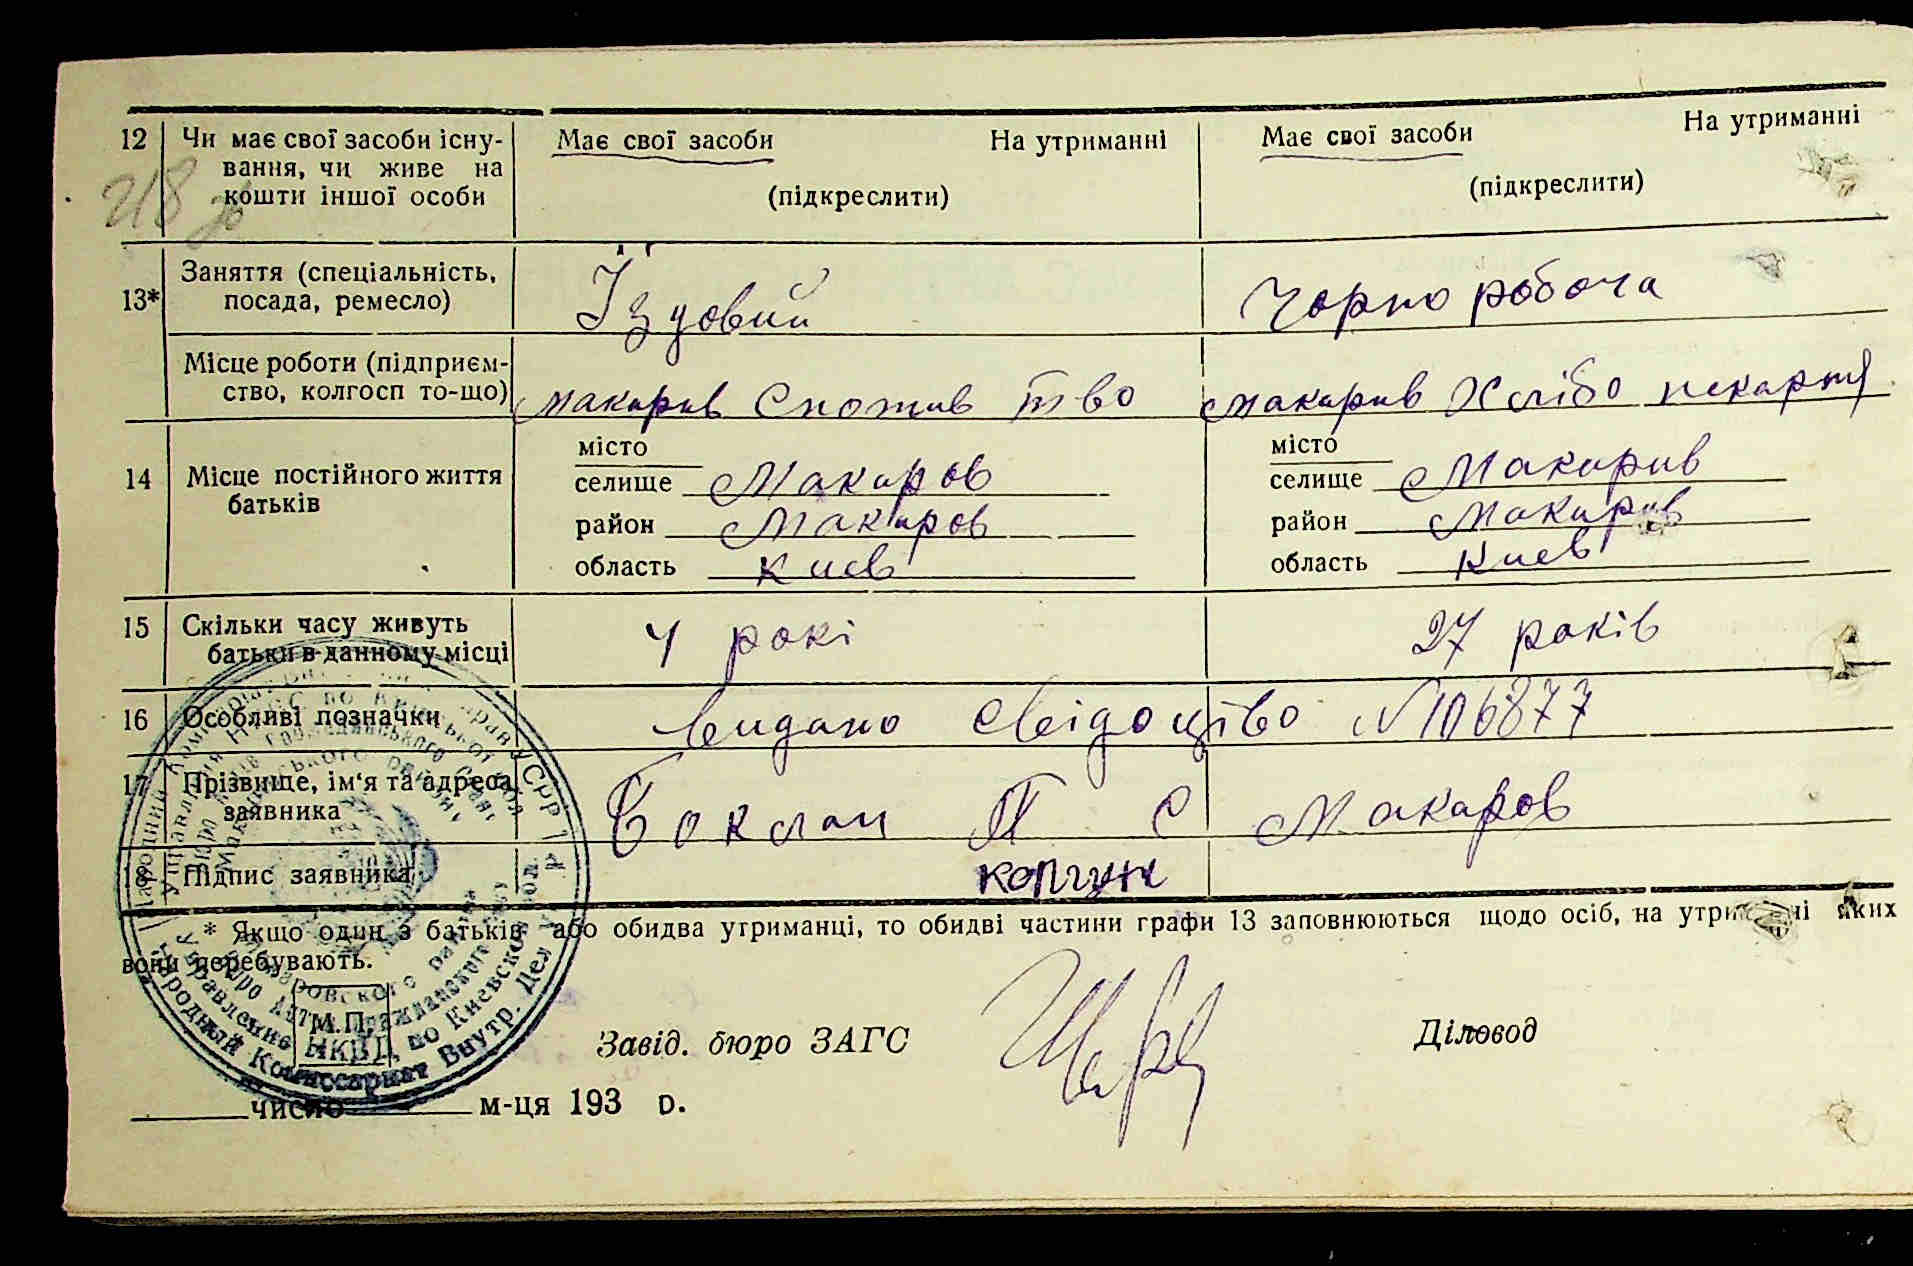 12 Чи має свої засоби існу- Має свої засоби На утриманні Має свої засоби На утриманні
вання, чи живе на
кошти іншої особи (підкреслити) (підкреслити)
218
13* Заняття (спеціальність, Їздовий Чорно робоча
посада, ремесло)
Місце роботи (підприєм-
ство, колгосп то-що) Макарив Спожив тво Макарив Хлібо пекарня
14 Місце постійного життя місто місто
батьків селище Макаров селище Макарив
район Макаров район Макарив
область Киев область Киев
15 Скільки часу живуть 4 рокі 27 років
батьки в данному місці
16 Особливі позначки видано свідоцтво N106877
17 Прізвище, ім'я та адреса Боклан П С Макаров
заявника
18 Підпис заявника
* Якщо один з батьків або обидва утриманці, то обидві частини графи 13 заповнюються щодо осіб, на утриманні яких
вони перебувають.
М.П.
НКВД
Завід. бюро ЗАГС Діловод
число м-ця 193 р.
Народный Комиссариат Внутр. Дел
Управление НКВД по Киевской обл.